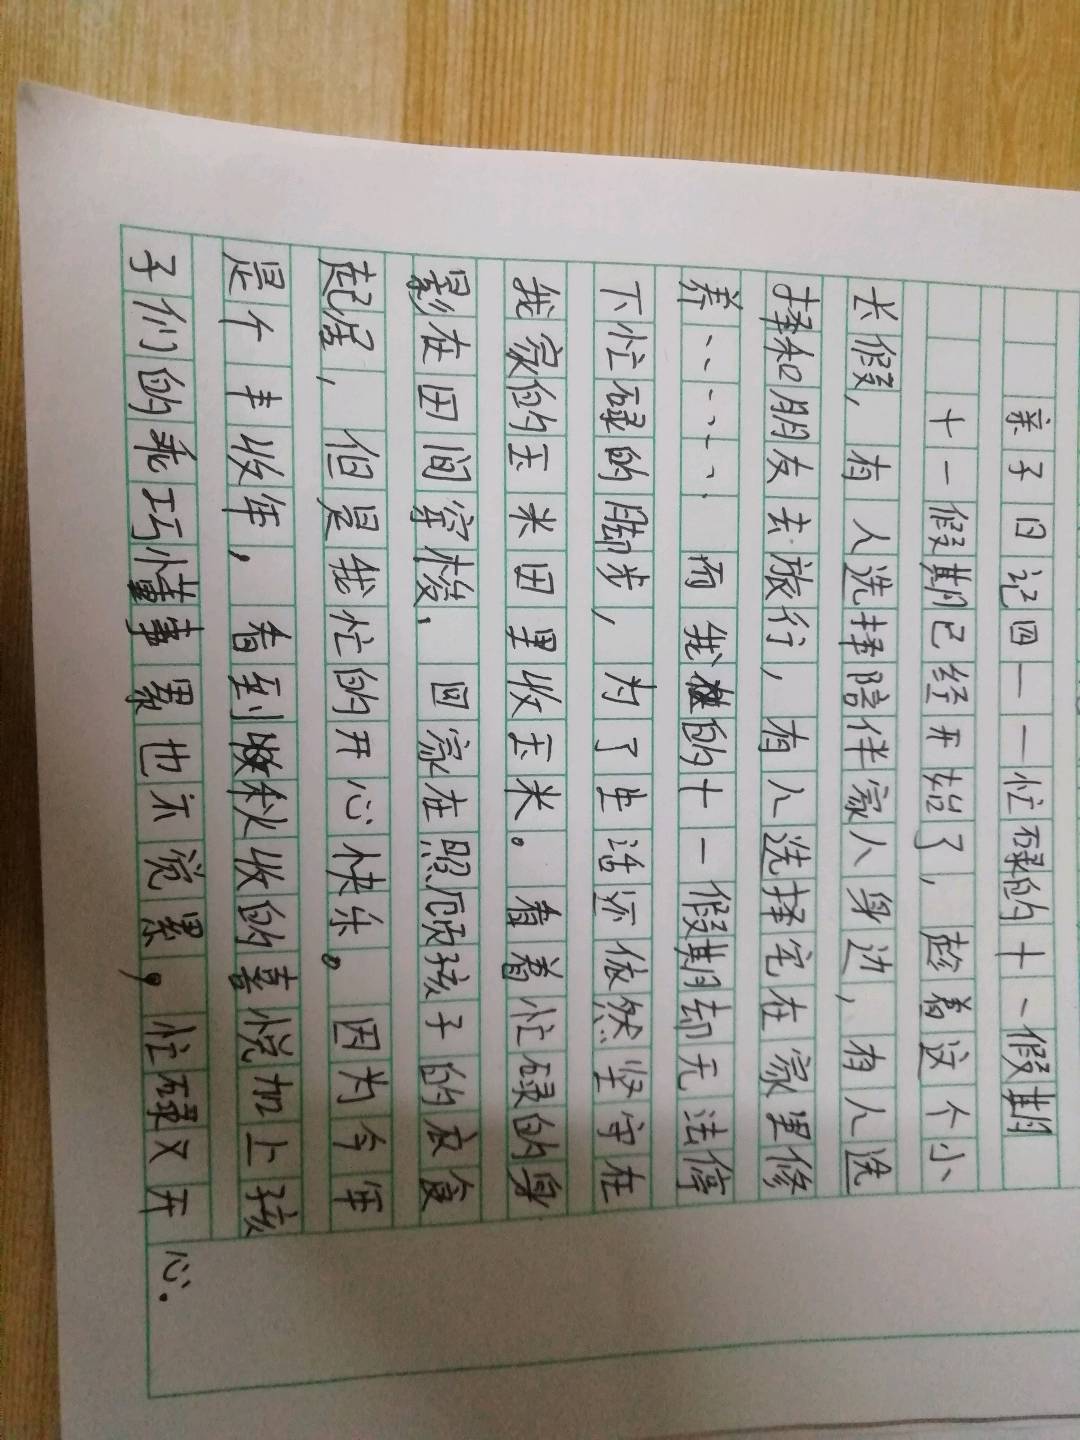 亲子日记四——忙碌的十一假期
十一假期已经开始了，趁着这个小
长假，有人选择陪伴家人身边，有人选
择和朋友去旅行，有人选择宅在家里修
养……而我的十一假期却无法停
下忙碌的脚步，为了生活还依然坚守在
我家的玉米田里收玉米。看着忙碌的身
影在田间穿梭，回家在照顾孩子的衣食
起居，但是我忙的开心快乐。因为今年
是个丰收年，看到秋收的喜悦加上孩
子们的乖巧懂事累也不觉累，忙碌又开
心.